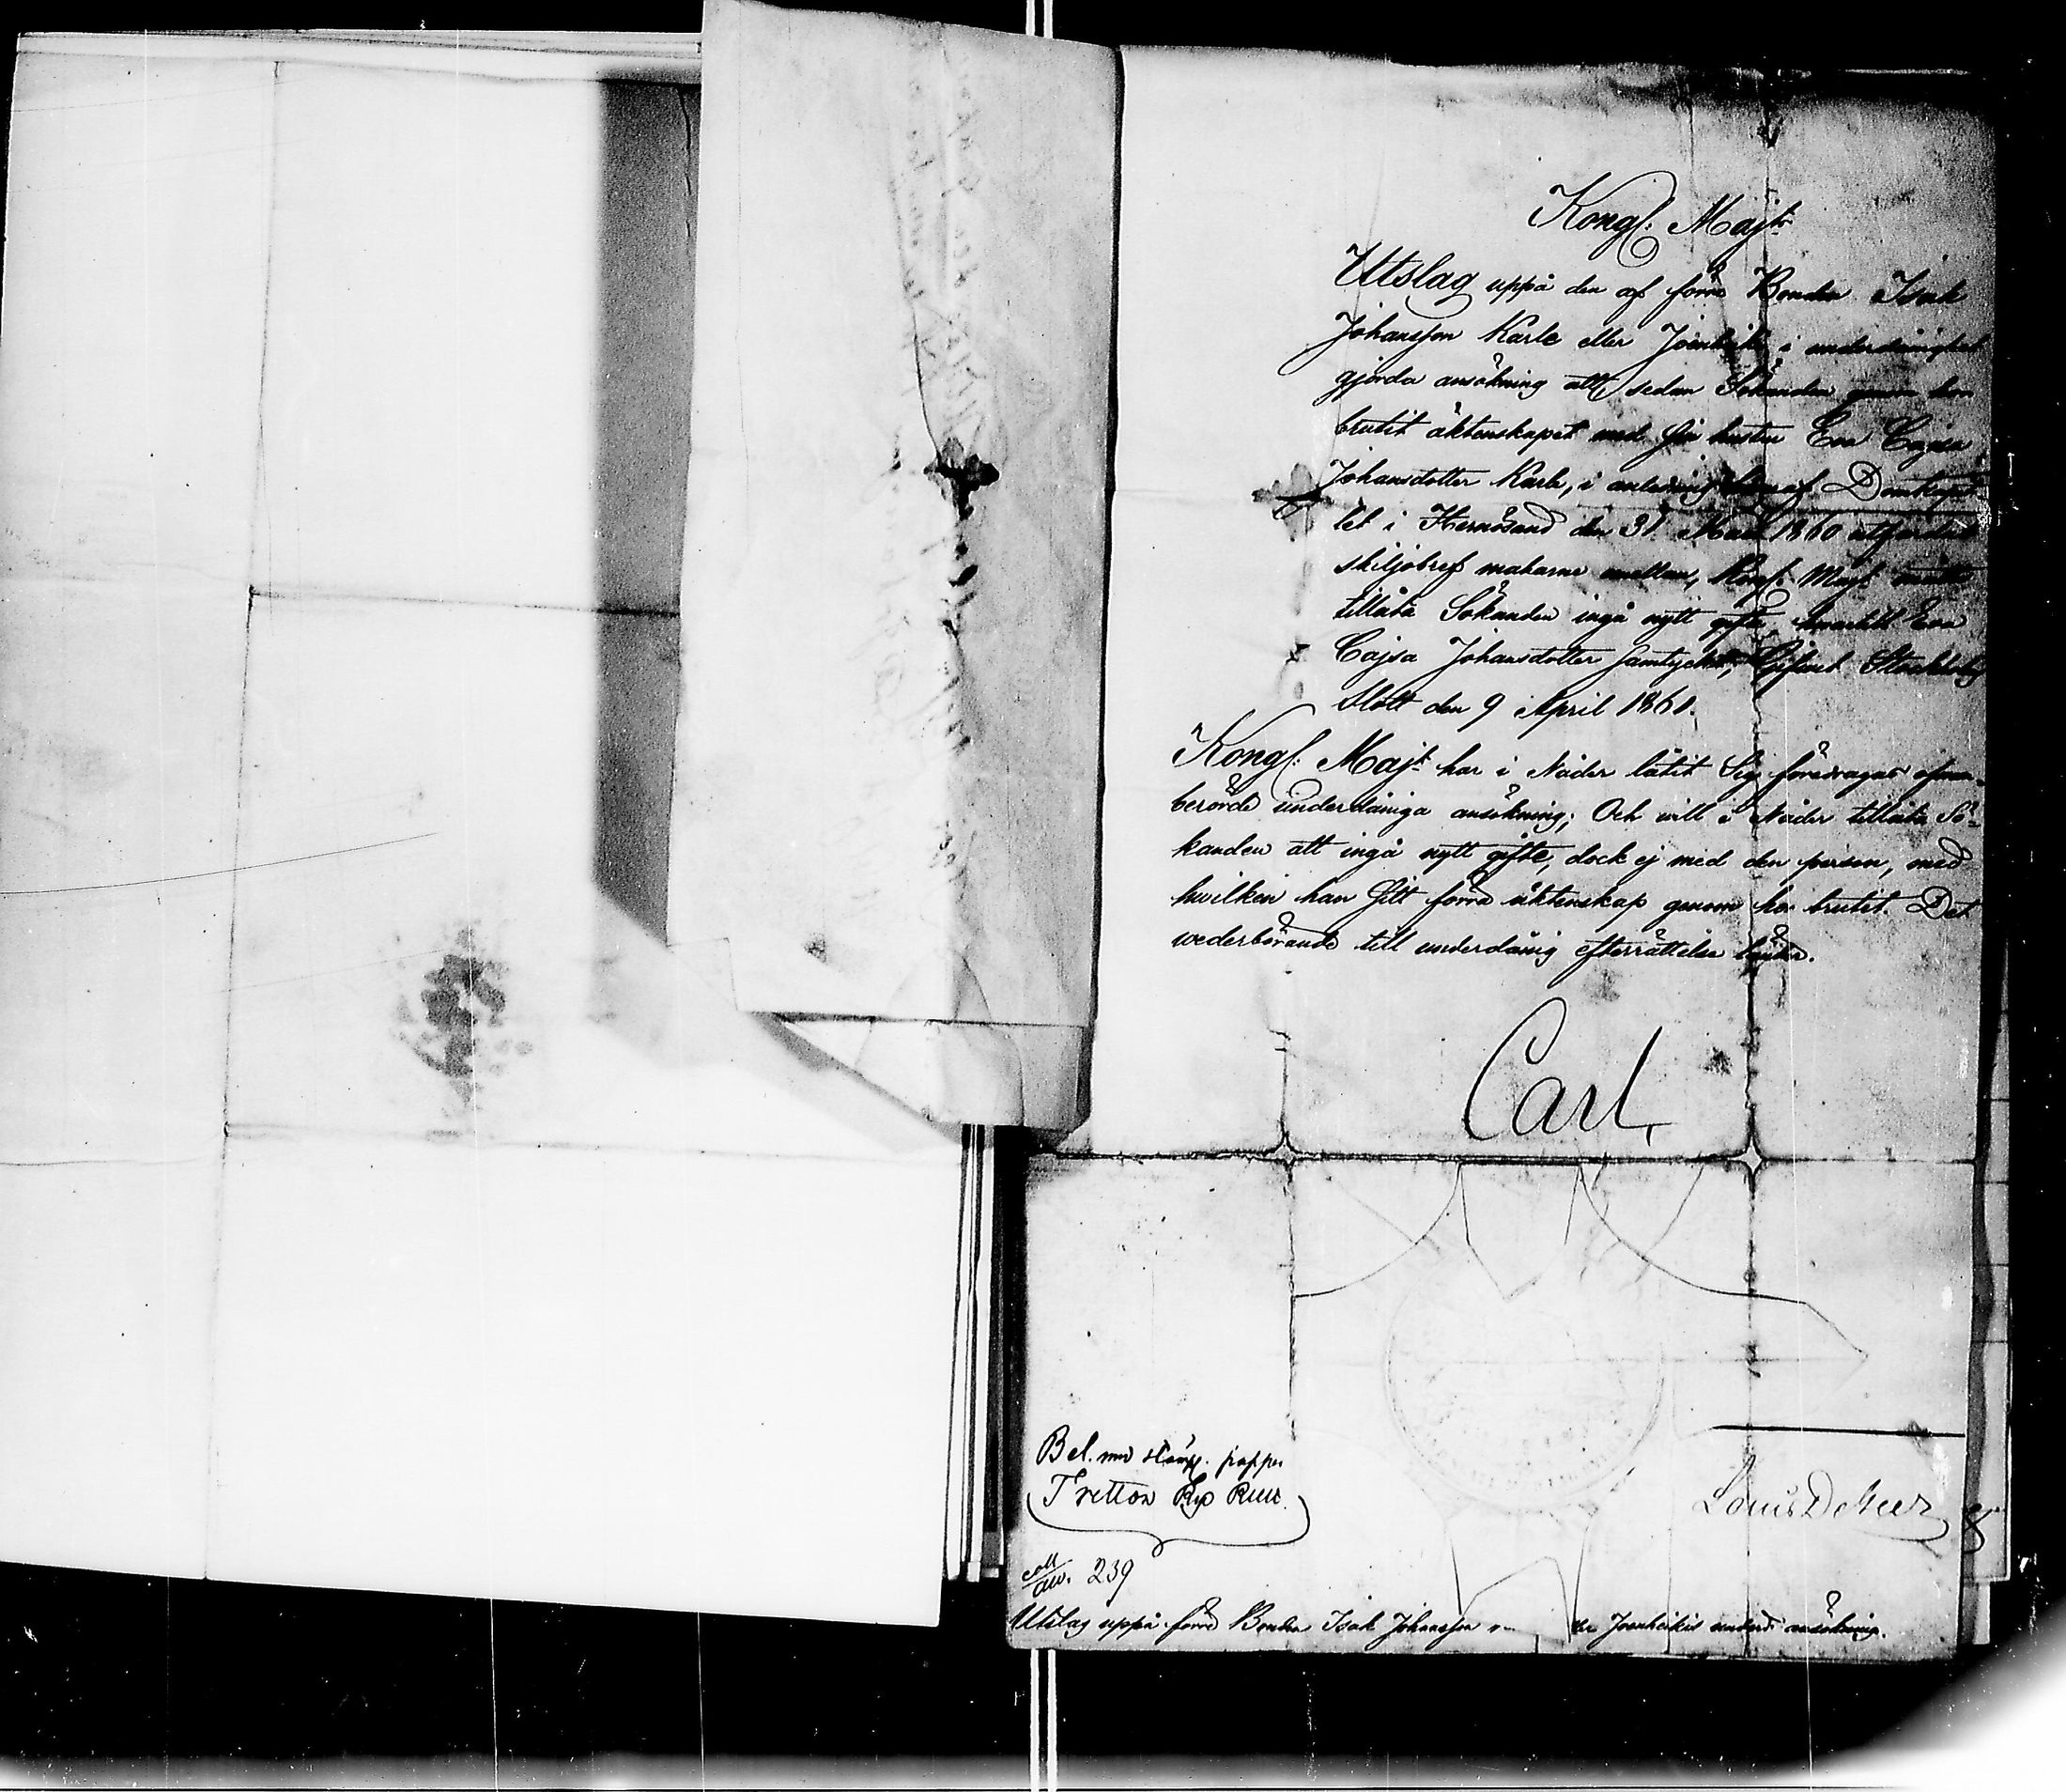 Kongl. Majts
Utslag uppå den af förre Bonden Isak
Johansson Karle eller Joenheiki i underdånighet
gjorda ansökning att, sedan Sökanden genom hor
brutit äktenskapet med sin hustru Eva Cajsa
Johansdotter Karle, i anledning hvaraf Domkapit-
let i Hernösand den 31 Mars 1860 utfärdat
skiljobref makarne emellan, Kongl. Majt måtte
tillåta Sökanden ingå nytt gifte, hvartill Eva
Cajsa Johansdotter samtyckt; Gifvet Stockholms
Slott den 9 April 1861.
Kongl. Majt har i Nåder låtit Sig föredragas ofvan-
berörde underdåniga ansökning; Och vill i Nåder tillåta Sö-
kanden att ingå nytt gifte, dock ej med den person, med
hvilken han sitt förra äktenskap genom hor brutit. Det
wederbörande till underdånig efterrättelse länder.
Carl
Bel. med stämp. papper
Tretton Rdr Rmt.
Louis De Geer
239
Utslag uppå förre Bonden Isak Johansson Joenheikis underd. ansökning.